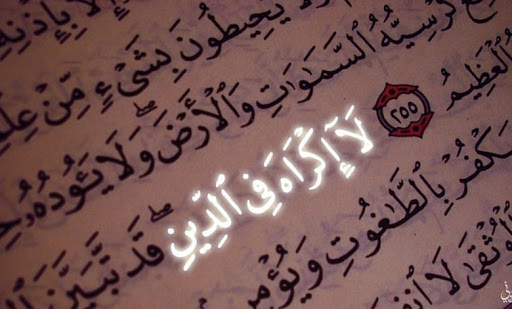 إِلَّا بِإِذْنِهِ
يُحِيطُونَ بِشَىْءٍ مِّنْ عِلْمِ
كُرْسِيُّهُ ٱلسَّمَٰوَٰتِ وَٱلْأَرْضَ ۖ وَلَا يَـُٔودُهُۥ
ٱلْعَظِيمُ ٢٥٥ لَآ إِكْرَاهَ فِى ٱلدِّينِ ۖ قَد تَّبَيَّنَ ٱل
يَكْفُرْ بِٱلطَّٰغُوتِ وَيُؤْمِنۢ
ٱلْوُثْقَىٰ لَا ٱنفِ